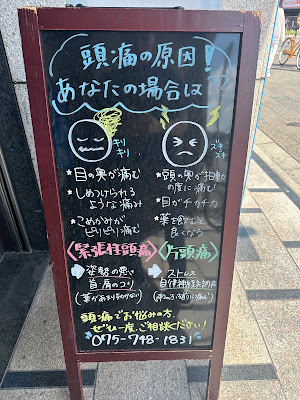 頭痛の原因!
あなたの場合は??
キリ
キリ
ズキ
ズキ
*目の奥が痛む
*しめつけられる
ような痛み
*こめかみが
ピリピリ痛む
*頭の奥が拍動
の度に痛む
*目がチカチカ
*薬を飲むと
良くなる
〈緊張性頭痛〉
〈片頭痛〉
➡ 姿勢の悪い
首肩のコリ
(薬があまり効かない)
➡ ストレス
自律神経
頭痛でお悩みの方、
ぜひ一度、ご相談ください!
075-748-1831